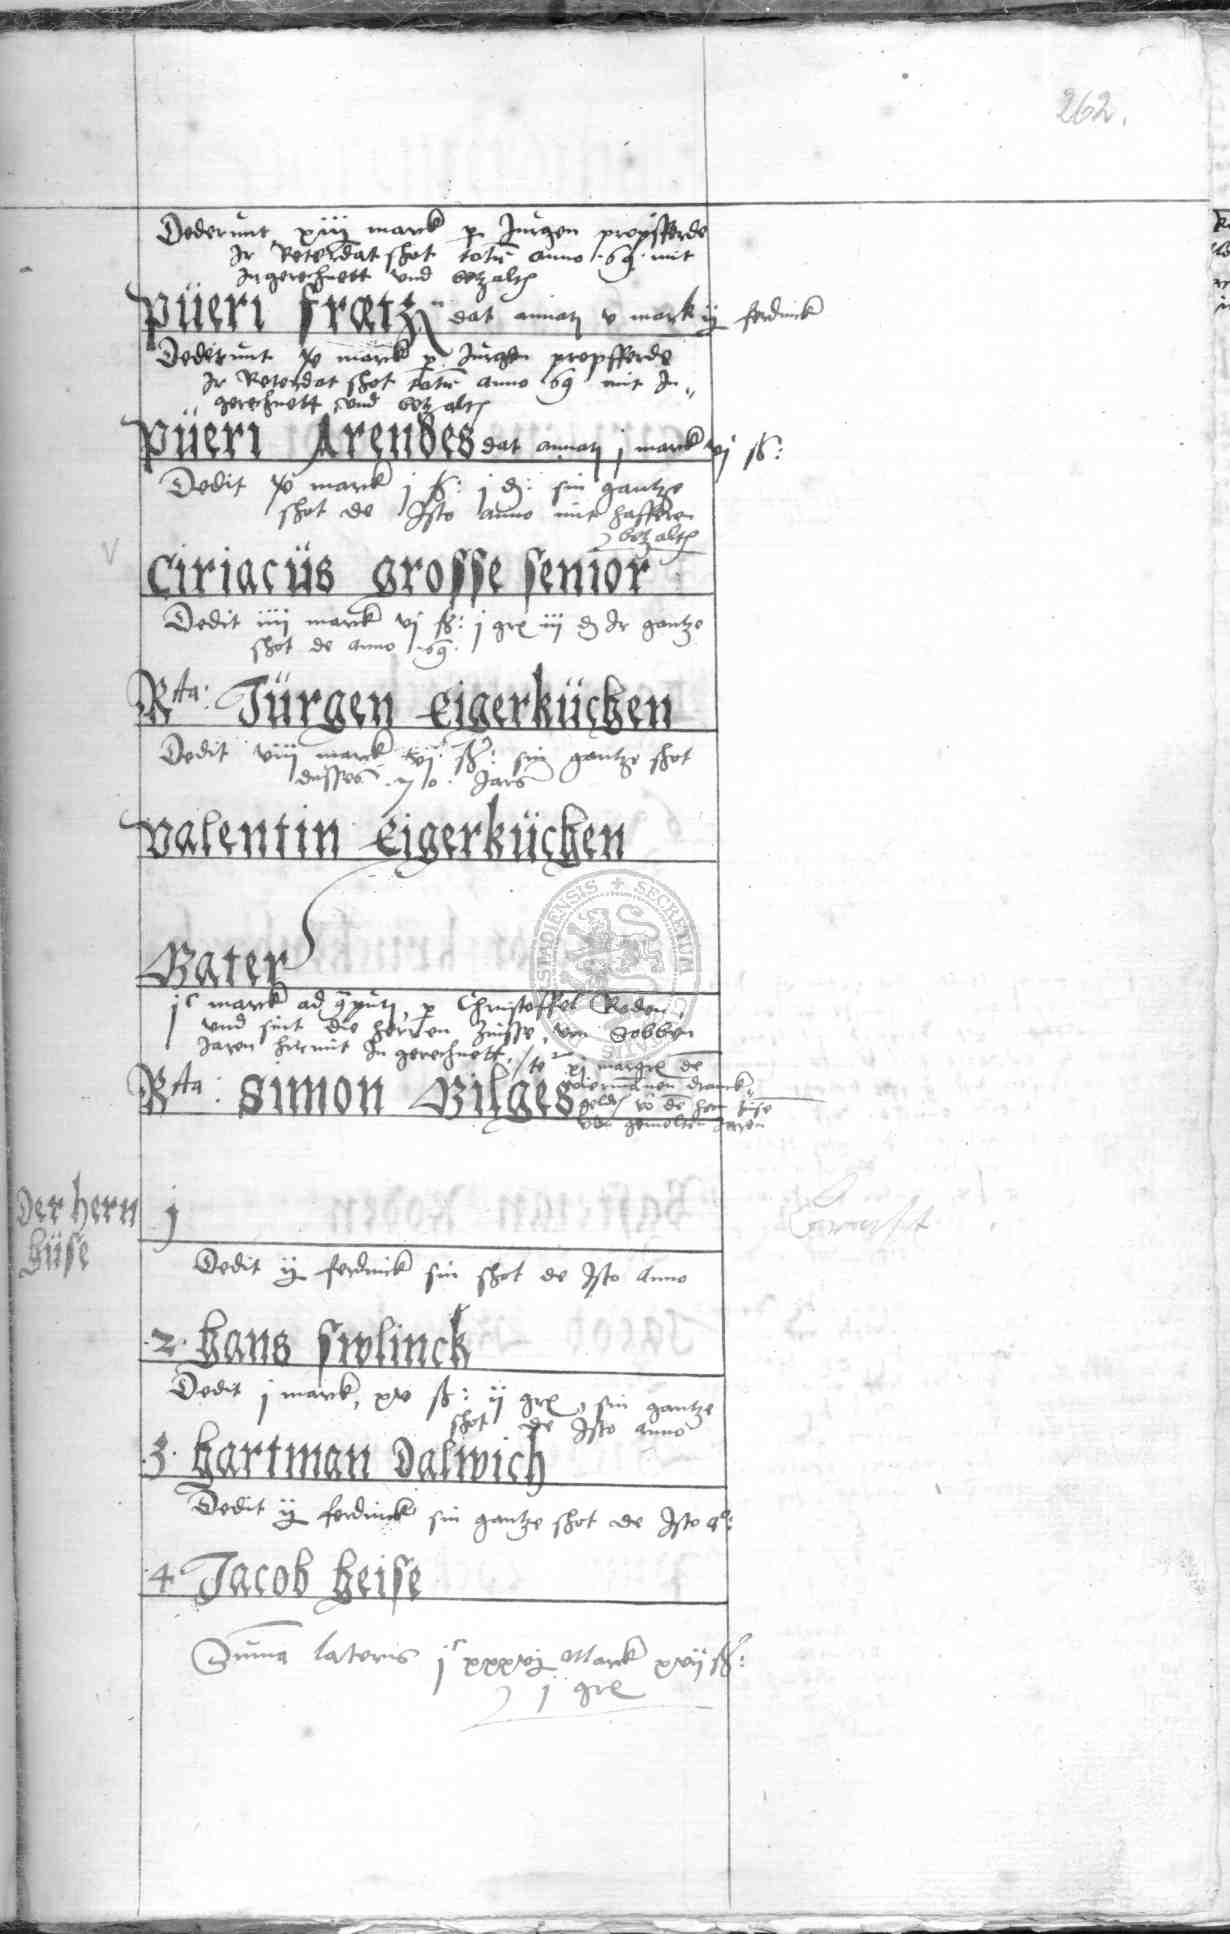 262.
Dederunt xiii marck p Jurgen propsfferde
Ir Reterdat shot totu anno 69 mit
In gerechnett und betzalt
püeri fratz dat annatj v mark ij ferdinck
Dederunt xv marck p Jurgen propfferde
Ir Reterdat shot totu anno 69 mit In
gerechnett und betzalt
püeri Arendes dat annatj j marck vj ß:
Dedit xv marck j ß: j d: sin gantze
shot de Isto anno mit hafferen
betzalt
V
Ciriacüs grosse senior
Dedit iiii marck vj ß: j gr iii d Ir gantze
shot de anno 69.
Rta: Jürgen Eigerküchen
Dedit viii marck ß: sin gantze shot
dusses 70. Jars
valentin Eigerküchen
Bater
jc marck ad p Christoffel Roden
und sint die herren Zinsse, von Sobben
Jaren hirmit In gerechnett
xj margr de
Rta: Simon Bilges
viermanen dranck
geld vo de hern huse
von gemelten Jaren
Der hern
hüse
j
Dedit ij ferdinck sin shot de Isto Anno
.2. hans swlinck
Dedit j marck, xv ß: ij gr, sin gantze
shot de Isto anno
.3. hartman Dalwich
Dedit ij ferdinck sin gantze shot de Isto ao:
.4. Jacob heise
Suma lateris jc xxxvj Marck xvij ß:
j gr